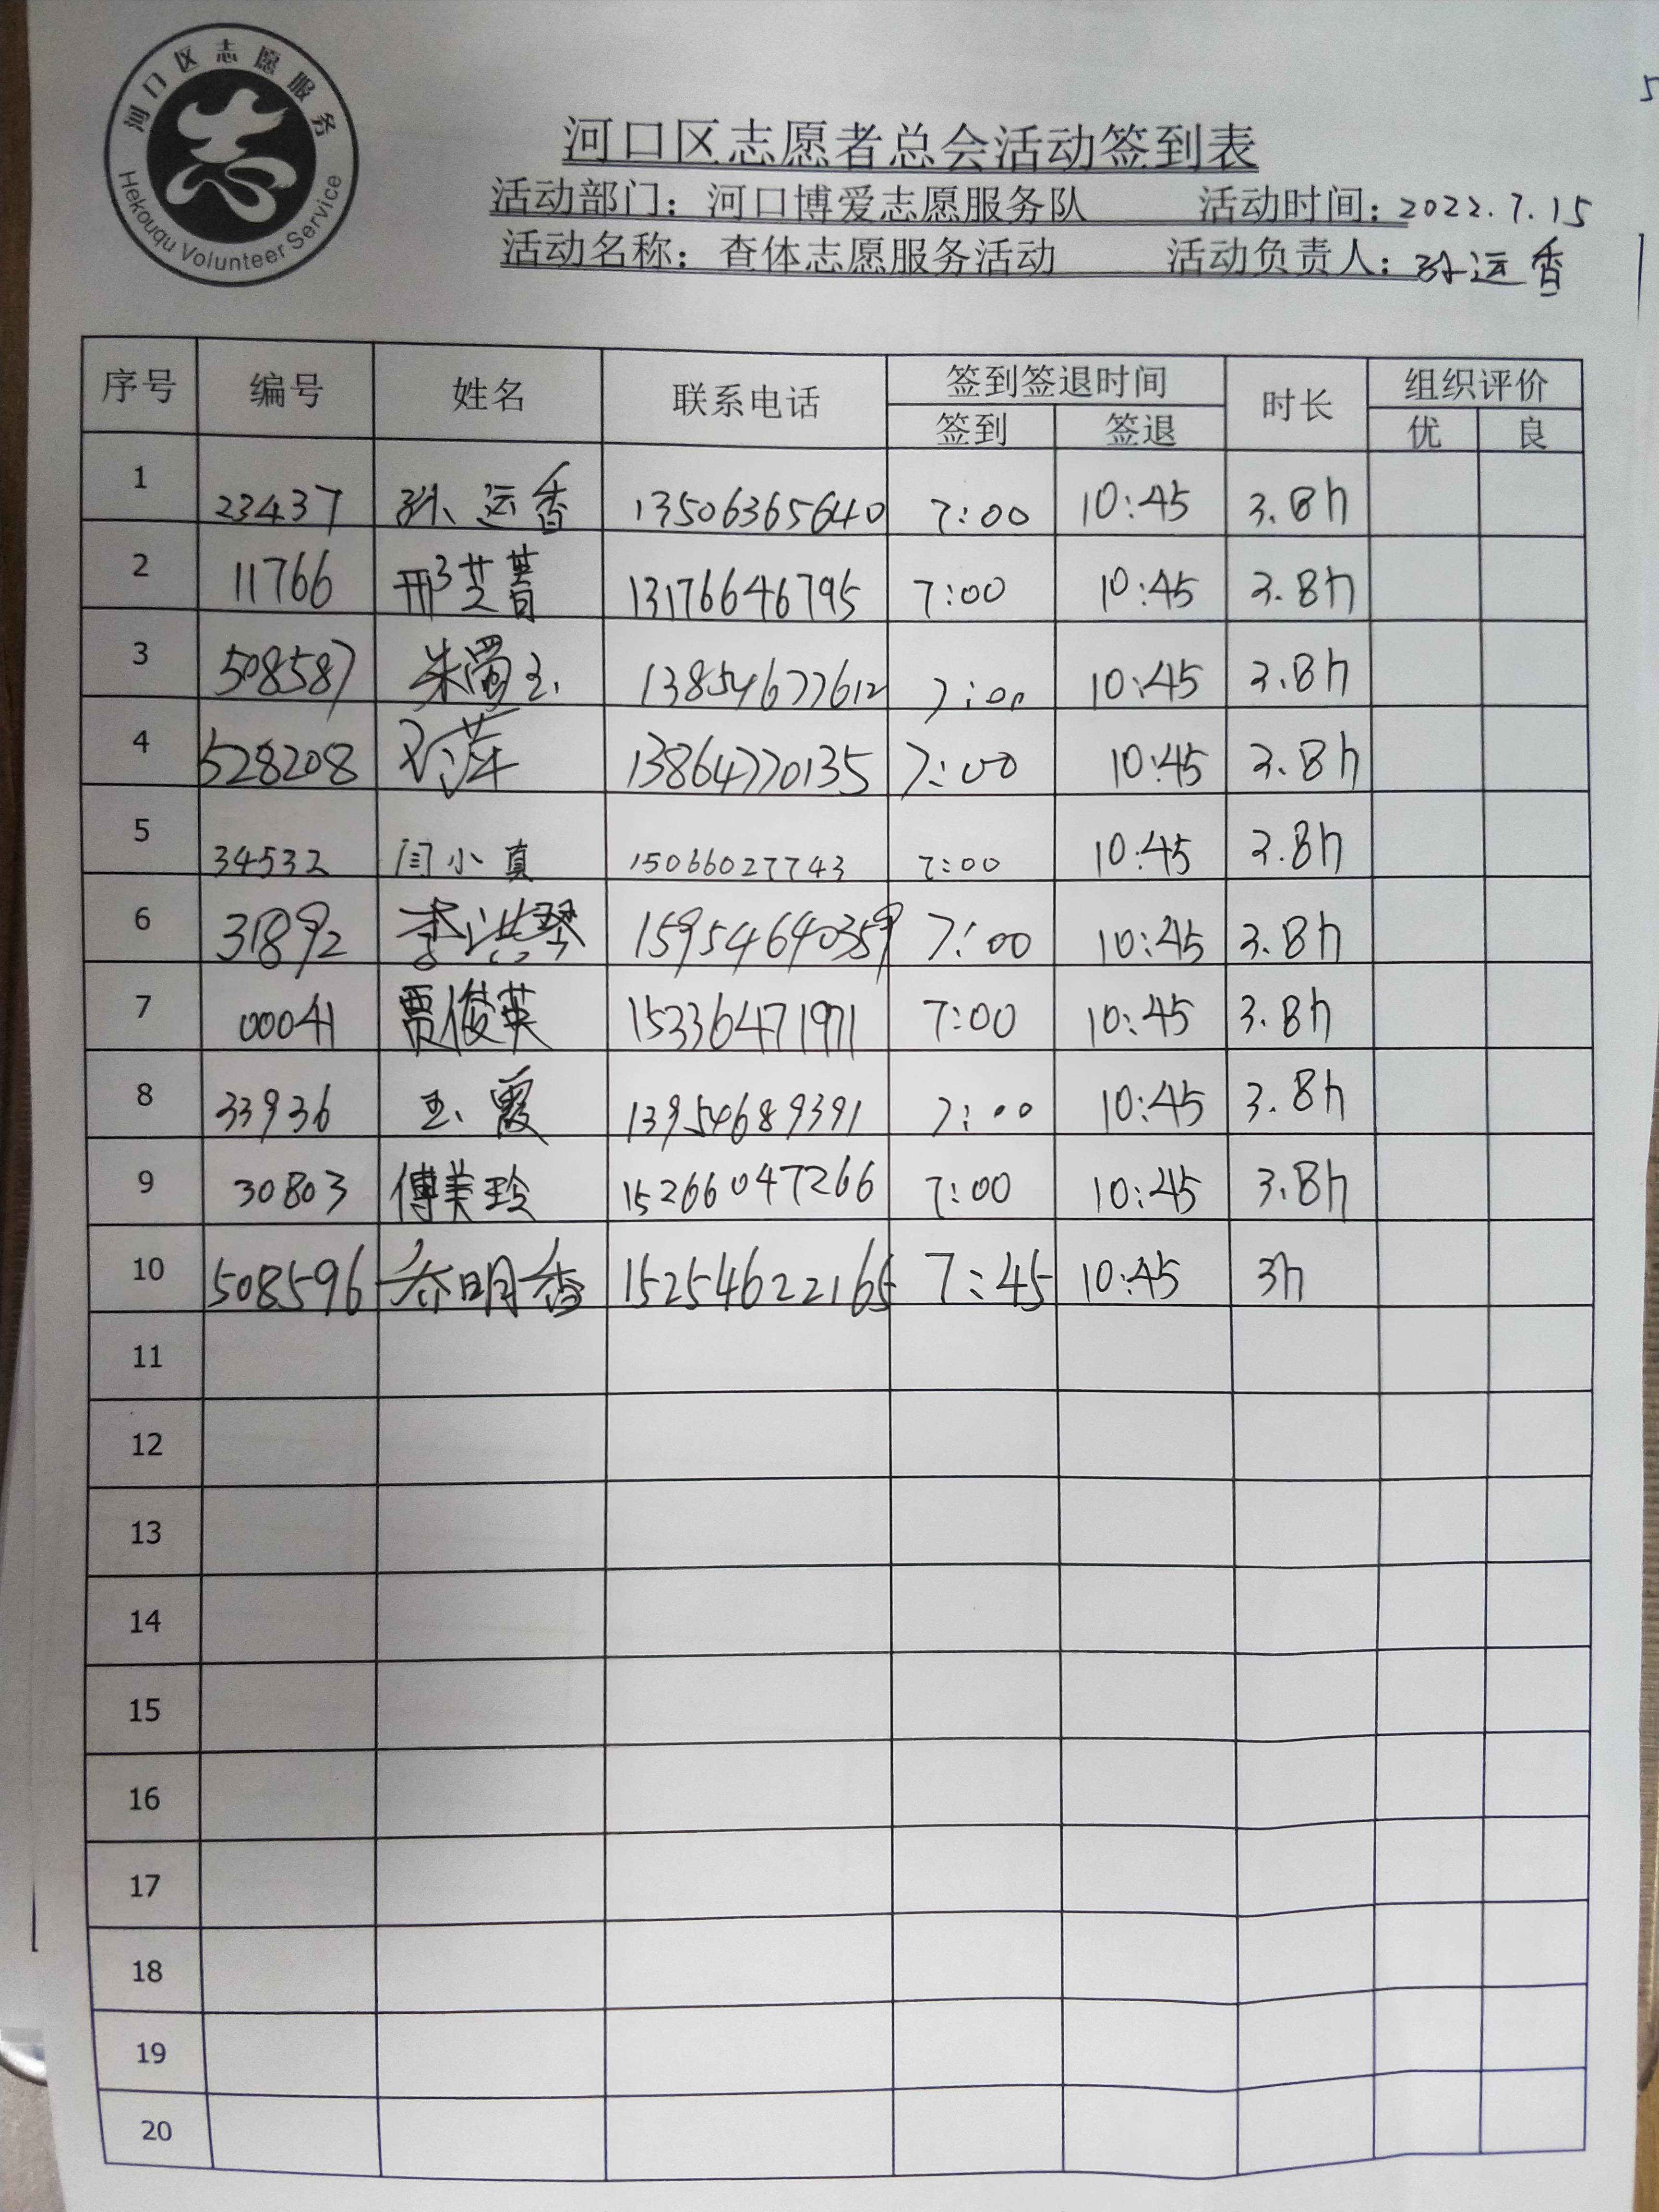 河口区志愿服务
Hekouqu Volunteer Service
河口区志愿者总会活动签到表
活动部门：河口博爱志愿服务队 活动时间：2022.7.15
活动名称：查体志愿服务活动 活动负责人：孙运香
序号 编号 姓名 联系电话 签到签退时间 时长 组织评价
签到 签退 优 良
1 23437 孙运香 13506365640 7:00 10:45 3.8h
2 11766 邢芝菁 13176646795 7:00 10:45 3.8h
3 508587 朱蜀玉 13854677612 7:00 10:45 3.8h
4 528208 邓萍 13864770135 7:00 10:45 3.8h
5 34532 闫小真 15066027743 7:00 10:45 3.8h
6 31892 李洪琴 15954640359 7:00 10:45 3.8h
7 00041 贾俊英 15336471971 7:00 10:45 3.8h
8 33936 王霞 13954689391 7:00 10:45 3.8h
9 30803 傅美玲 15266047266 7:00 10:45 3.8h
10 508596 乔明香 15254622165 7:45 10:45 3h
11
12
13
14
15
16
17
18
19
20